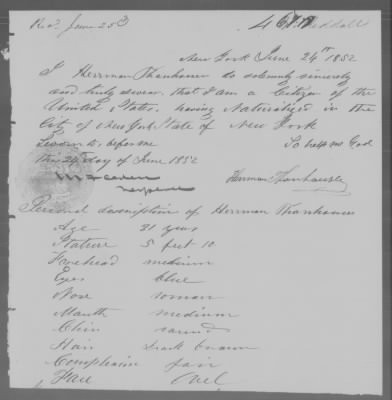 Recd June 25
New York June 24th 1852
I Herrman Thanhauser do solemnly sincerely
and truly swear that I am a Citizen of the
United States, having Naturalised in the
City of New York State of New York
Sworn to before me So help me God
this 24th day of June 1852
Herrman Thanhauser
Personal description of Herrman Thanhauser
Age 21 years
Stature 5 feet 10
Forehead medium
Eyes blue
Nose roman
Mouth medium
Chin round
Hair dark brown
Complexion fair
Face Ovel